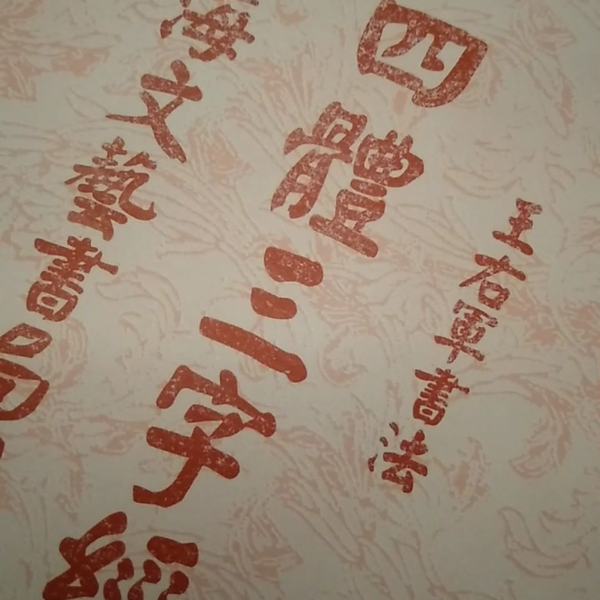 王右軍書法
四體三字經
海文藝書局